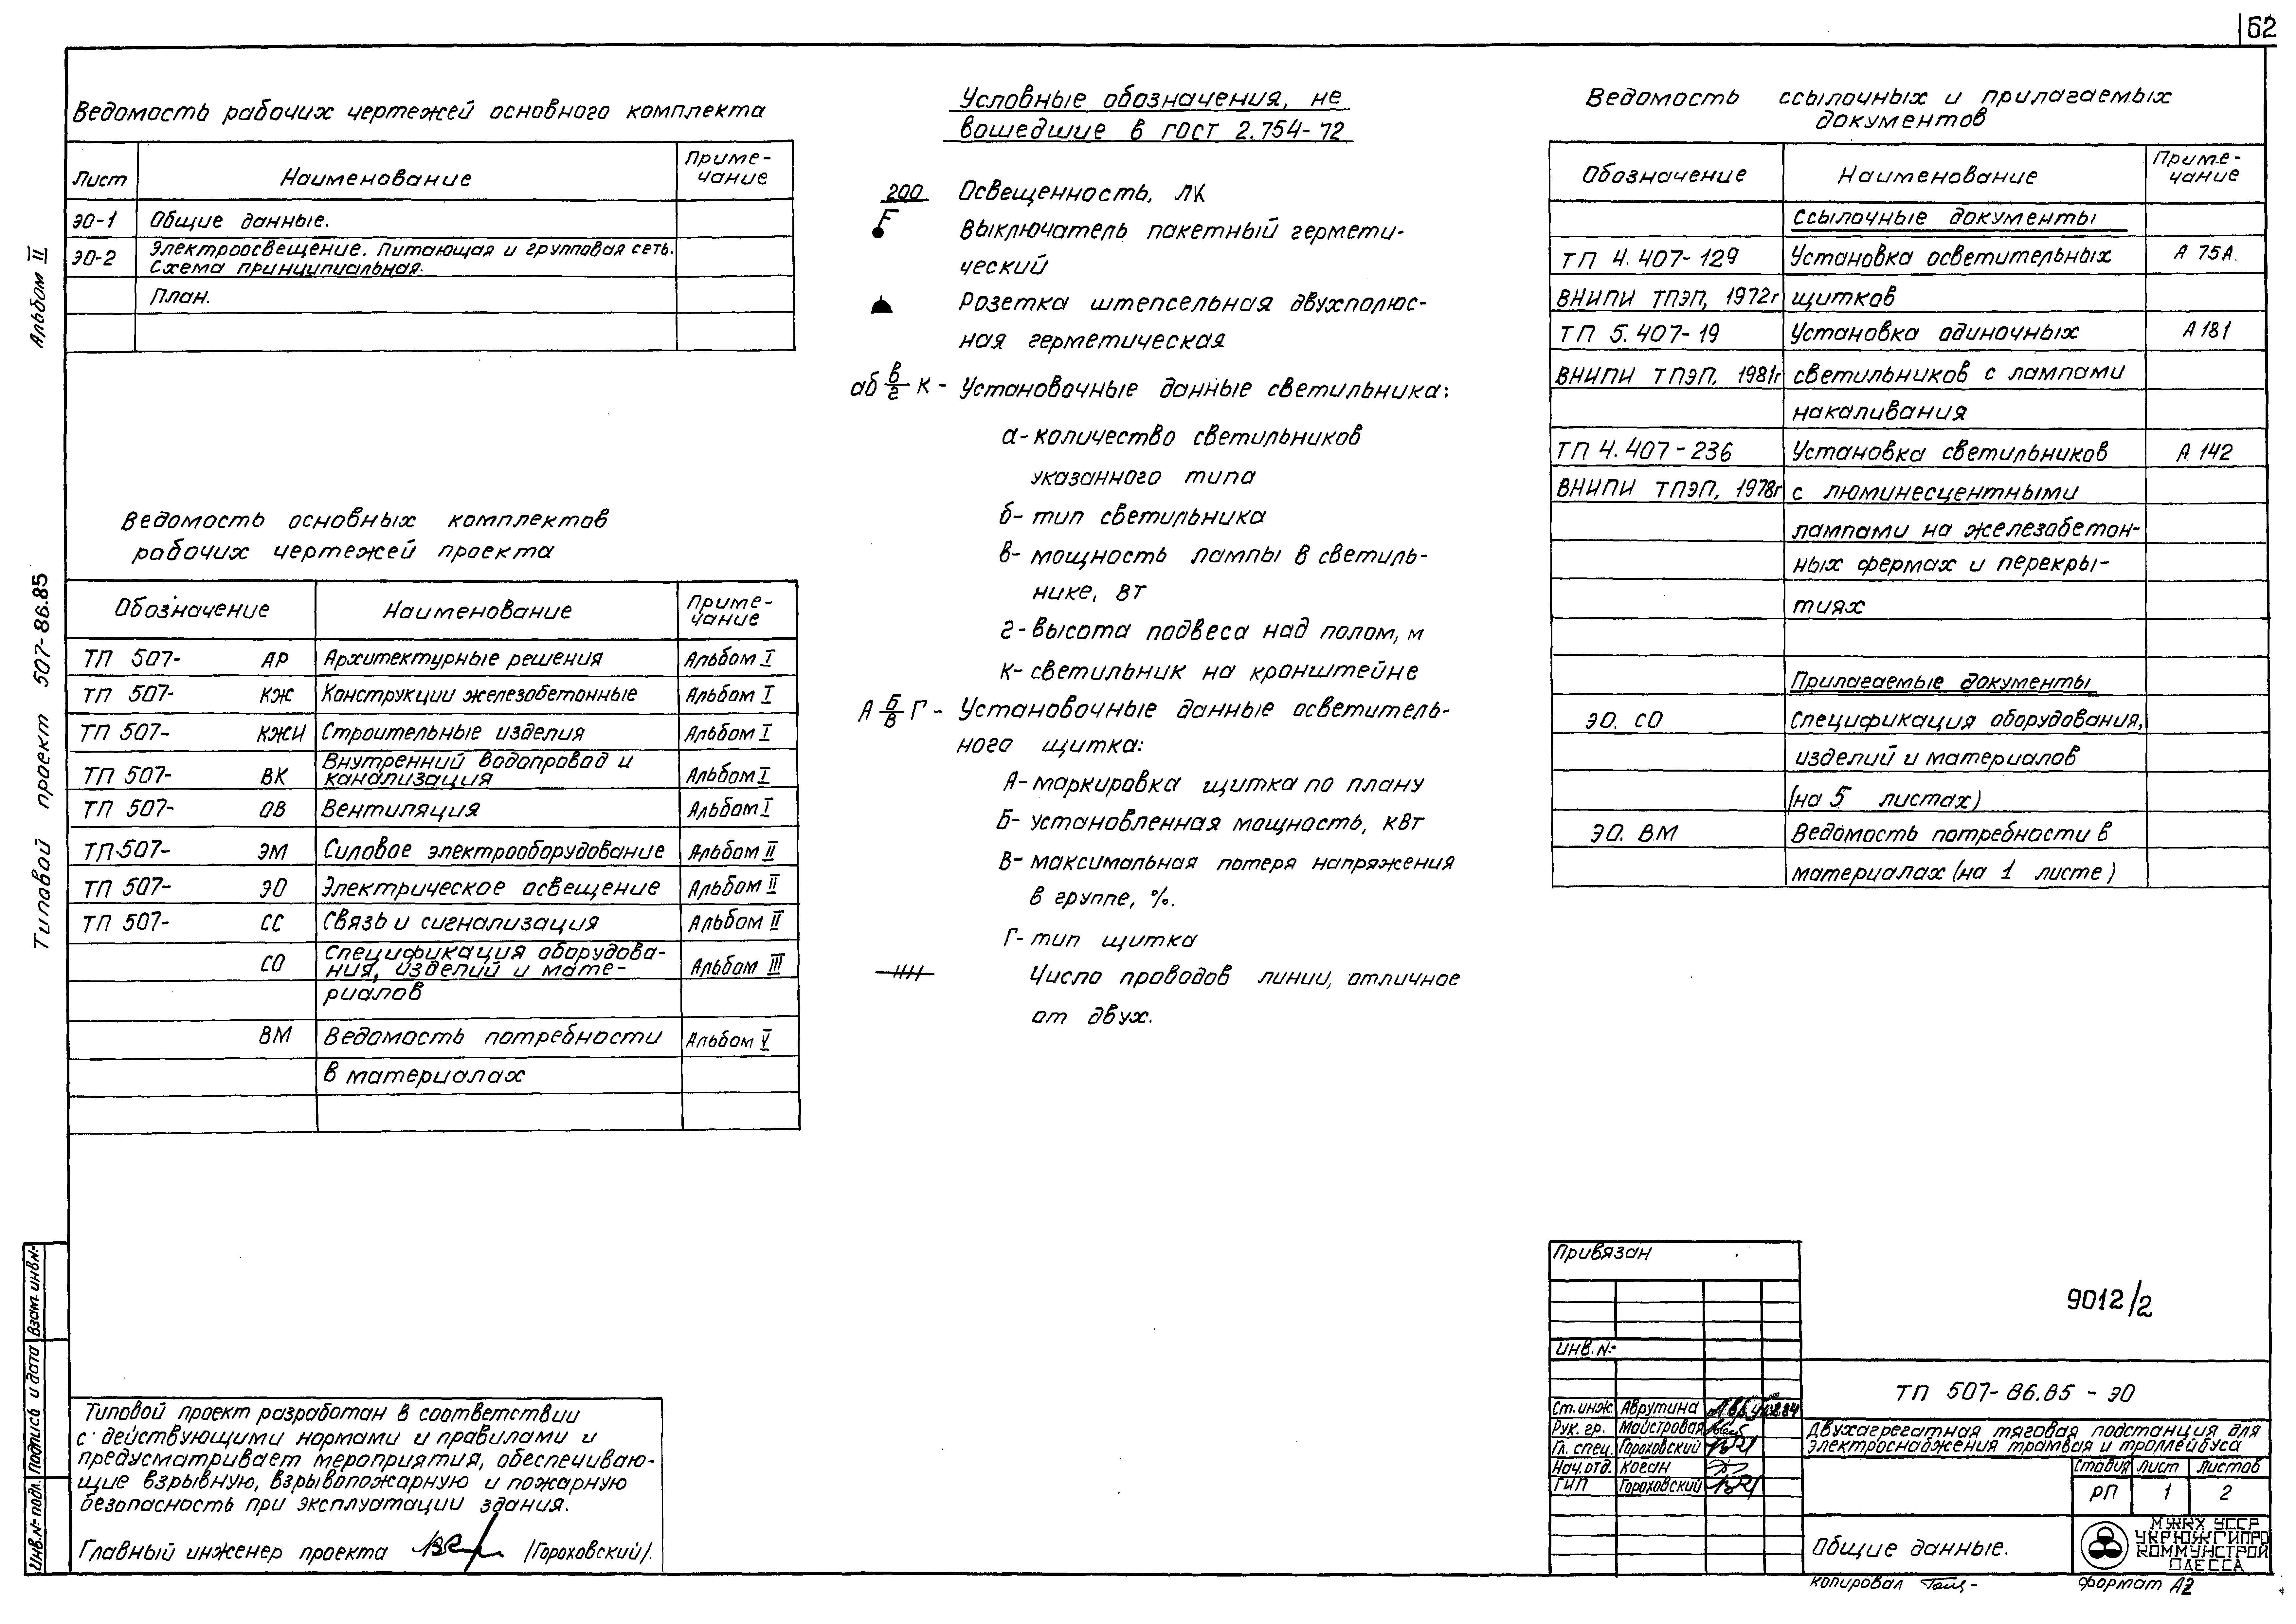 62
Альбом II
Типовой проект 507-86.85
Ведомость рабочих чертежей основного комплекта
Лист Наименование Приме-
чание
ЭО-1 Общие данные.
ЭО-2 Электроосвещение. Питающая и групповая сеть.
Схема принципиальная.
План.
Ведомость основных комплектов
рабочих чертежей проекта
Обозначение Наименование Приме-
чание
ТП 507- АР Архитектурные решения Альбом I
ТП 507- КЖ Конструкции железобетонные Альбом I
ТП 507- КЖИ Строительные изделия Альбом I
ТП 507- ВК Внутренний водопровод и
канализация Альбом I
ТП 507- ОВ Вентиляция Альбом I
ТП 507- ЭМ Силовое электрооборудование Альбом II
ТП 507- ЭО Электрическое освещение Альбом II
ТП 507- СС Связь и сигнализация Альбом II
СО Спецификация оборудова-
ния, изделий и мате- Альбом III
риалов
ВМ Ведомость потребности Альбом V
в материалах
Типовой проект разработан в соответствии
с действующими нормами и правилами и
предусматривает мероприятия, обеспечиваю-
щие взрывную, взрывопожарную и пожарную
безопасность при эксплуатации здания.
Главный инженер проекта /Гороховский/.
Условные обозначения, не
вошедшие в ГОСТ 2.754-72
200 Освещенность, лк
Выключатель пакетный гермети-
ческий
Розетка штепсельная двухполюс-
ная герметическая
аб в/г К - Установочные данные светильника:
а- количество светильников
указанного типа
б- тип светильника
в- мощность лампы в светиль-
нике, вт
г- высота подвеса над полом, м
К- светильник на кронштейне
А Б/В Г - Установочные данные осветитель-
ного щитка:
А- маркировка щитка по плану
Б- установленная мощность, квт
В- максимальная потеря напряжения
в группе, %.
Г- тип щитка
Число проводов линии, отличное
от двух.
Ведомость ссылочных и прилагаемых
документов
Обозначение Наименование Приме-
чание
Ссылочные документы
ТП 4.407-129 Установка осветительных А 75А.
ВНИПИ ТПЭП, 1972г щитков
ТП 5.407-19 Установка одиночных А181
ВНИПИ ТПЭП, 1981г светильников с лампами
накаливания
ТП 4.407-236 Установка светильников А 142
ВНИПИ ТПЭП, 1978г с люминесцентными
лампами на железобетон-
ных фермах и перекры-
тиях
Прилагаемые документы
ЭО. СО Спецификация оборудования,
изделий и материалов
(на 5 листах)
ЭО. ВМ Ведомость потребности в
материалах (на 1 листе)
Привязан
Инв.№
9012/2
ТП 507-86.85 - ЭО
Ст. инж. Аврутина
Рук. гр. Майстровая
Гл. спец. Гороховский
Нач.отд. Коган
ГИП Гороховский
Двухагрегатная тяговая подстанция для
электроснабжения трамвая и троллейбуса
Стадия Лист Листов
РП 1 2
Общие данные.
МЖКХ УССР
УКРЮЖГИПРО
КОММУНСТРОЙ
ОДЕССА
Копировал Формат А2
Инв.№ подл. Подпись и дата Взам. инв.№